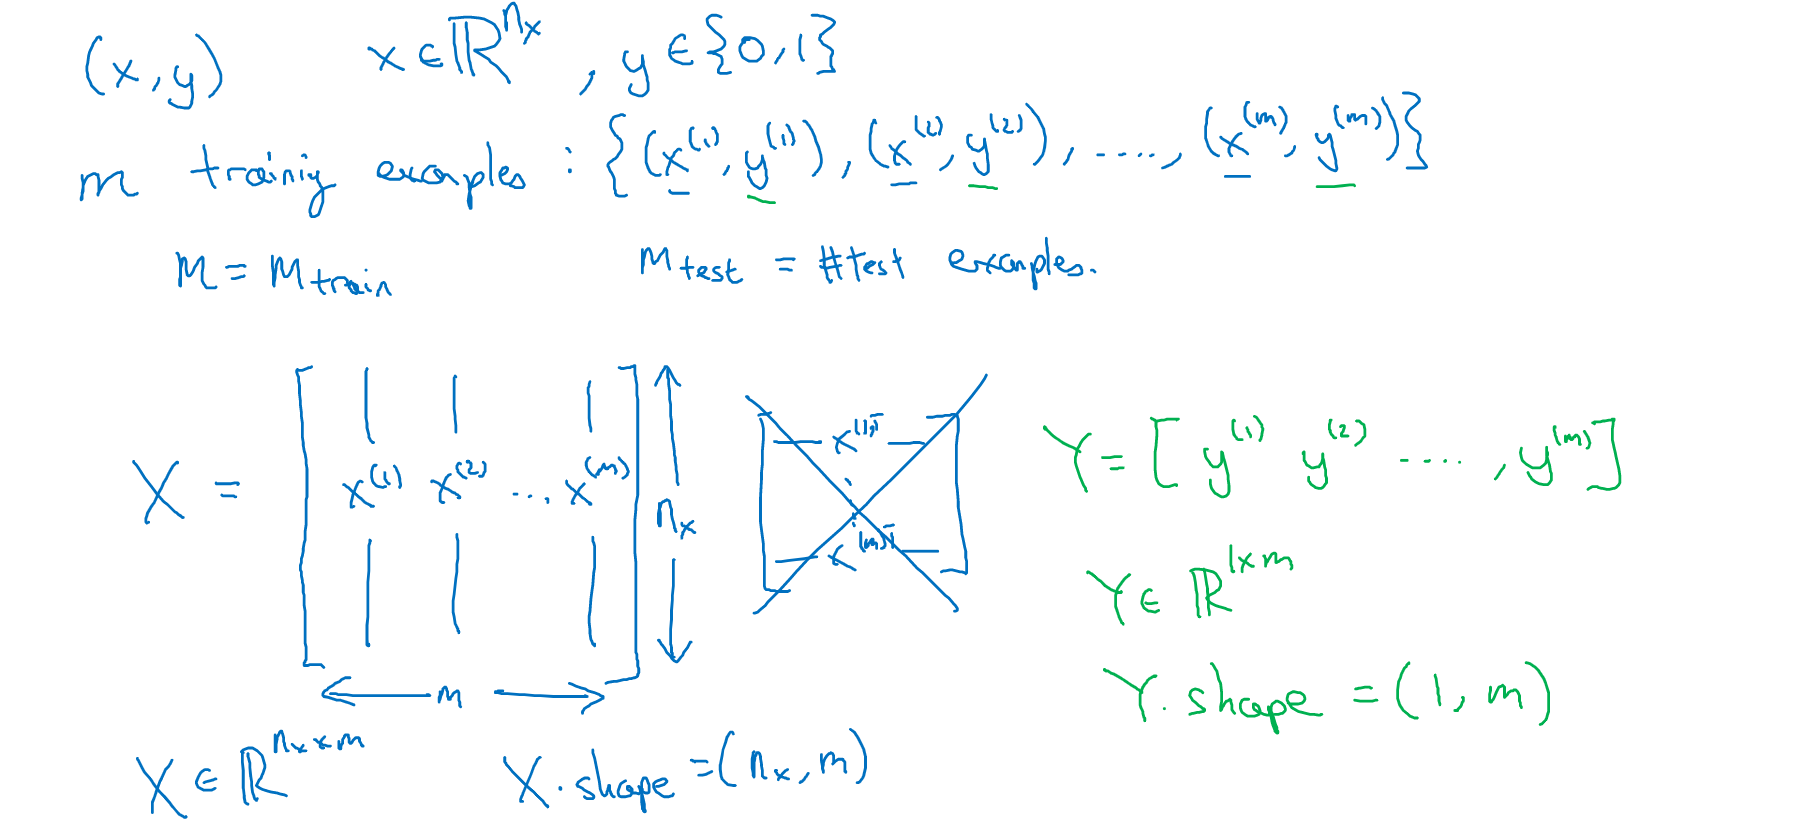 (x, y) x ∈ ℝ^{n_x}, y ∈ {0, 1}
m training examples : {(x^{(1)}, y^{(1)}), (x^{(2)}, y^{(2)}), ...., (x^{(m)}, y^{(m)})}
M = M_{train} M_{test} = #test examples.
X = [ x^{(1)} x^{(2)} ... x^{(m)} ] n_x
m
x^{(1)T}
x^{(m)T}
Y = [ y^{(1)} y^{(2)} ...., y^{(m)} ]
Y ∈ ℝ^{1×m}
Y.shape = (1, m)
X ∈ ℝ^{n_x × m} X.shape = (n_x, m)